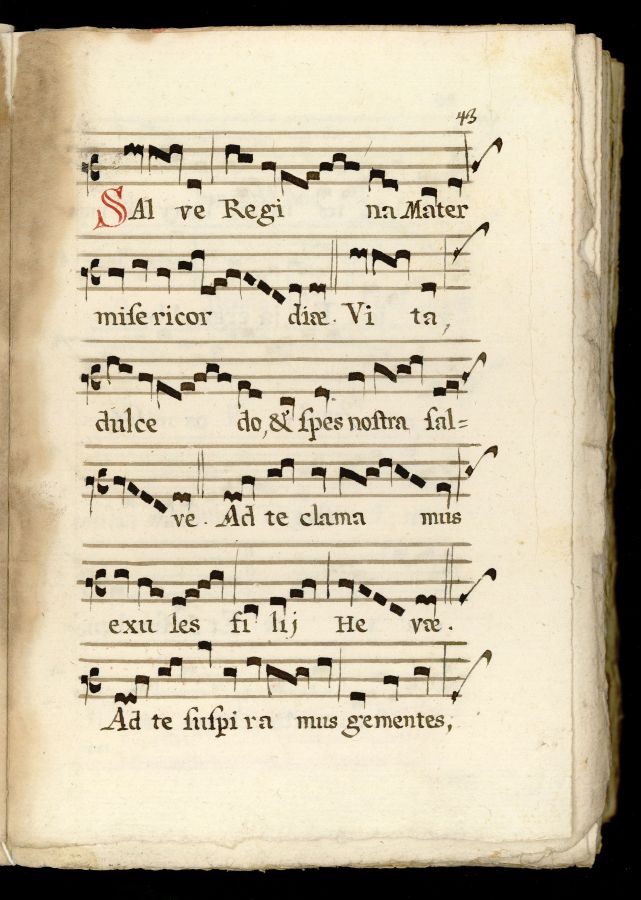 43
SAl ve Regi na Mater
miſe ricor diæ. Vi ta,
dulce do, & ſpes noſtra ſal=
ve. Ad te clama mus
exu les fi lij He væ.
Ad te ſuſpi ra mus gementes,